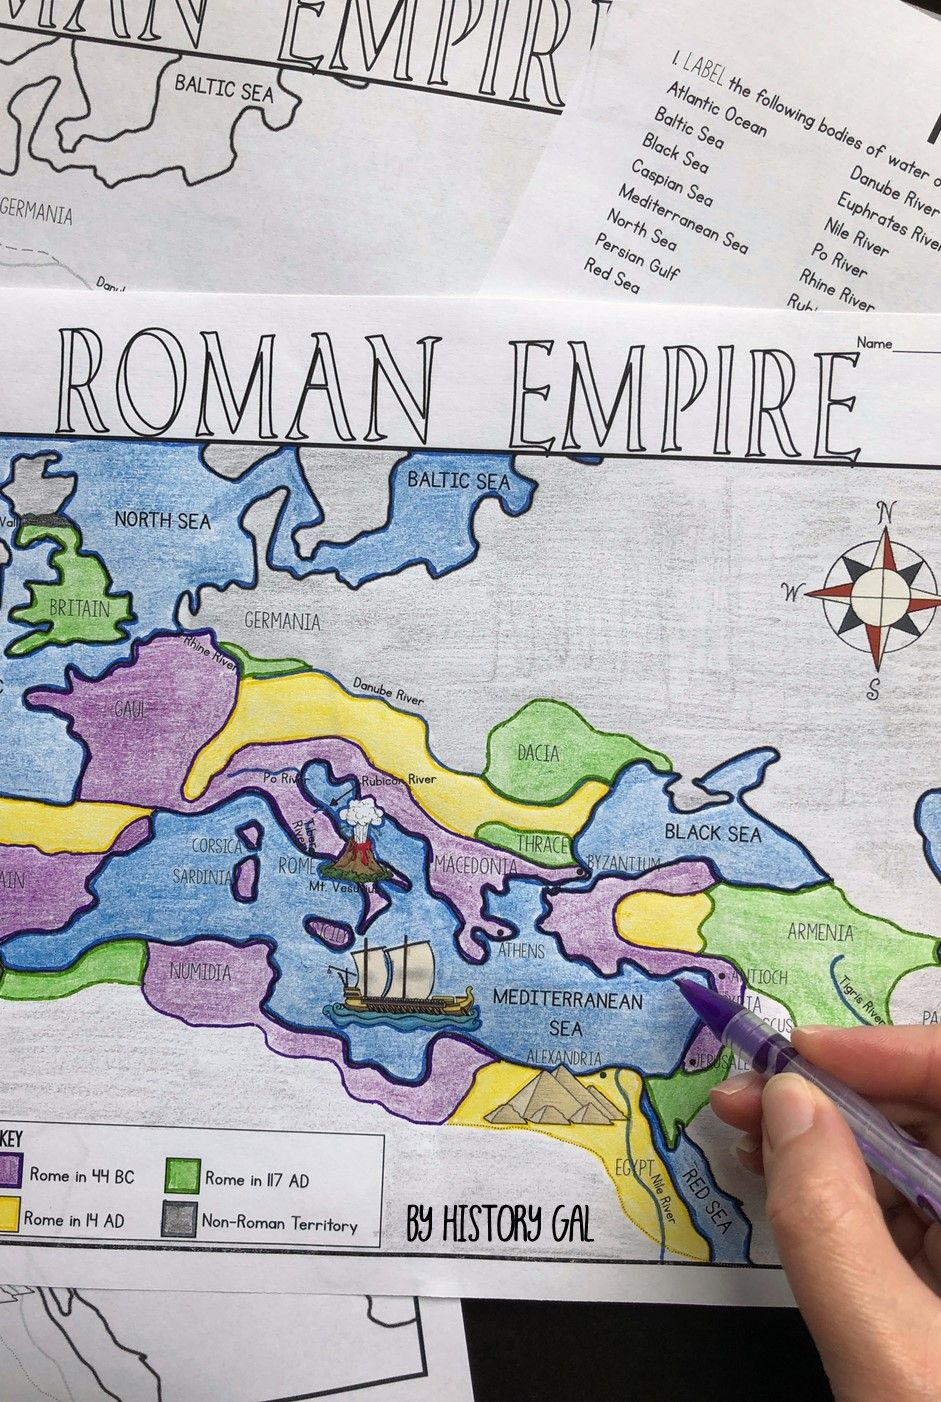 MAN EMPIRE
BALTIC SEA
GERMANIA
1. LABEL the following bodies of water
Atlantic Ocean
Baltic Sea
Black Sea
Caspian Sea
Mediterranean Sea
North Sea
Persian Gulf
Red Sea
Danube River
Euphrates River
Nile River
Po River
Rhine River
Name
ROMAN EMPIRE
BALTIC SEA
NORTH SEA
N
W
S
BRITAIN
GERMANIA
Rhine River
Danube River
GAUL
DACIA
Po River
Rubicon River
BLACK SEA
CORSICA
ROME
THRACE
BYZANTIUM
SARDINIA
Mt. Vesuvius
MACEDONIA
ARMENIA
ATHENS
NUMIDIA
ANTIOCH
Tigris River
MEDITERRANEAN
SEA
ALEXANDRIA
EGYPT
Nile River
RED SEA
KEY
Rome in 44 BC
Rome in 117 AD
Rome in 14 AD
Non-Roman Territory
BY HISTORY GAL